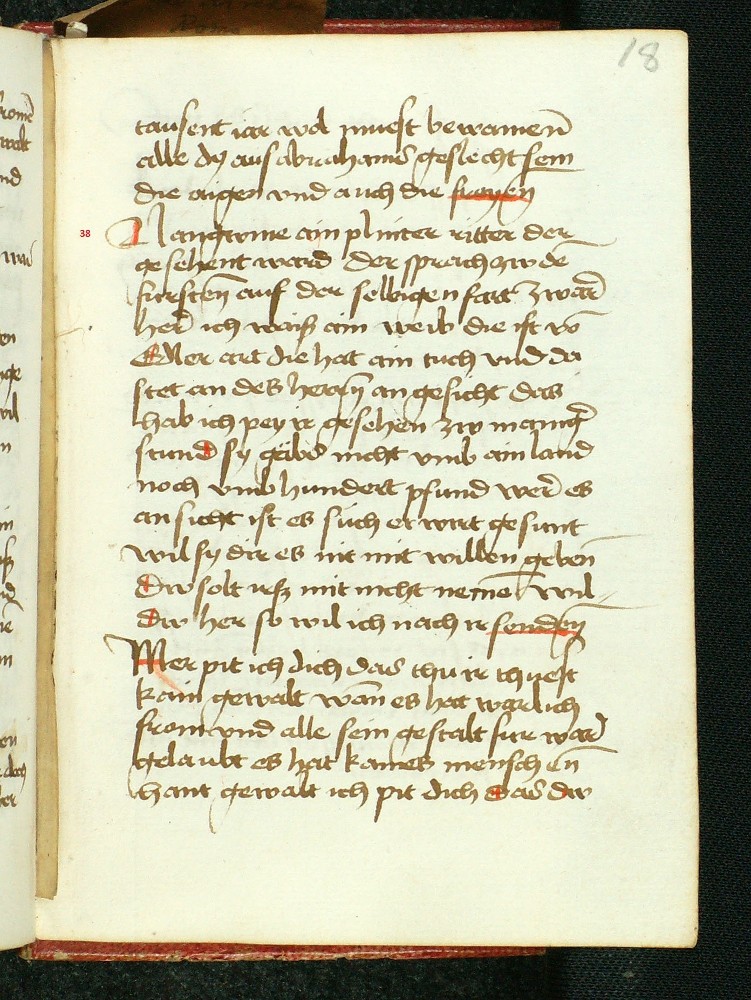 18
tausent iar wol muest bewainen̄
alle dy aus abrahams geslecht sein
die aigen vnd auch die frayen
38
Nangwme ain plinter ritter der
gesehent ward der sprach zw dē
fursten̄ auf der selbigen fart zwar̄
her̄ ich waiß ain weib die ist vō
Edler art die hat ain tuch vnd da
stet an des herrn̄ angesicht das
hab ich pey ir gesehen zw maniḡ
stund sy gäbs nicht vmb ain land
noch vmb hundert pfund wer̄ es
ansicht ist es siech er wirt gesunt
wil sy dir es nit mit willen geben̄
Dw solt irß mit nicht nemē wil
dw her so wil ich nach ir senden̄
Mer pit ich dich das thu ir thuest
kain gewalt wān es hat warlich
from vnd alle sein gestalt fur war̄
gelaubt es hat kaines menschen̄
hant gewalt ich pit dich das dw